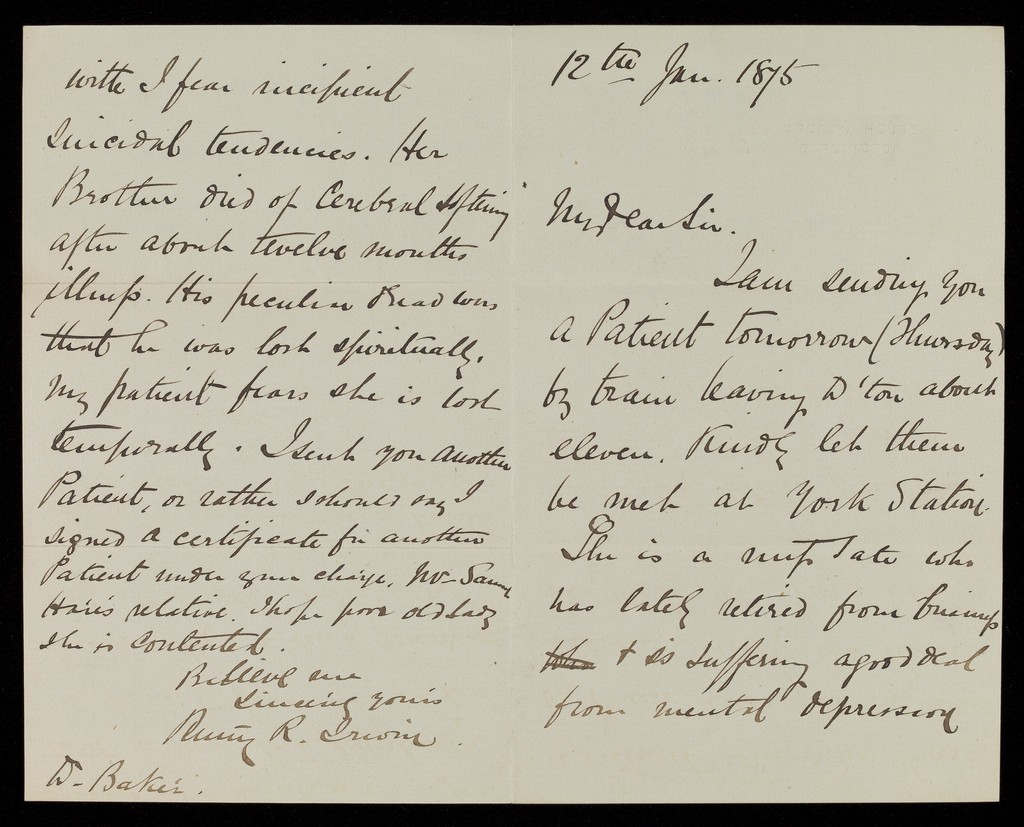 12th Jan. 1875
My Dear Sir.
I am sending you
a Patient tomorrow (Thursday)
by train leaving D'ton about
eleven. Kindly let them
be met at York Station.
She is a Miss Tate who
has lately retired from business
& is suffering a good deal
from mental depression
with I fear incipient
suicidal tendencies. Her
Brother died of Cerebral Softening
after about twelve months
illness. His peculiar dread was
that he was lost spiritually.
My patient fears she is lost
temporally. I sent you another
Patient, or rather I should say I
signed a certificate for another
Patient under your charge, Mr
relative. I hope poor old Lady
she is contented.
Believe me
Sincerely yours
R. Irwin.
Dr Baker.